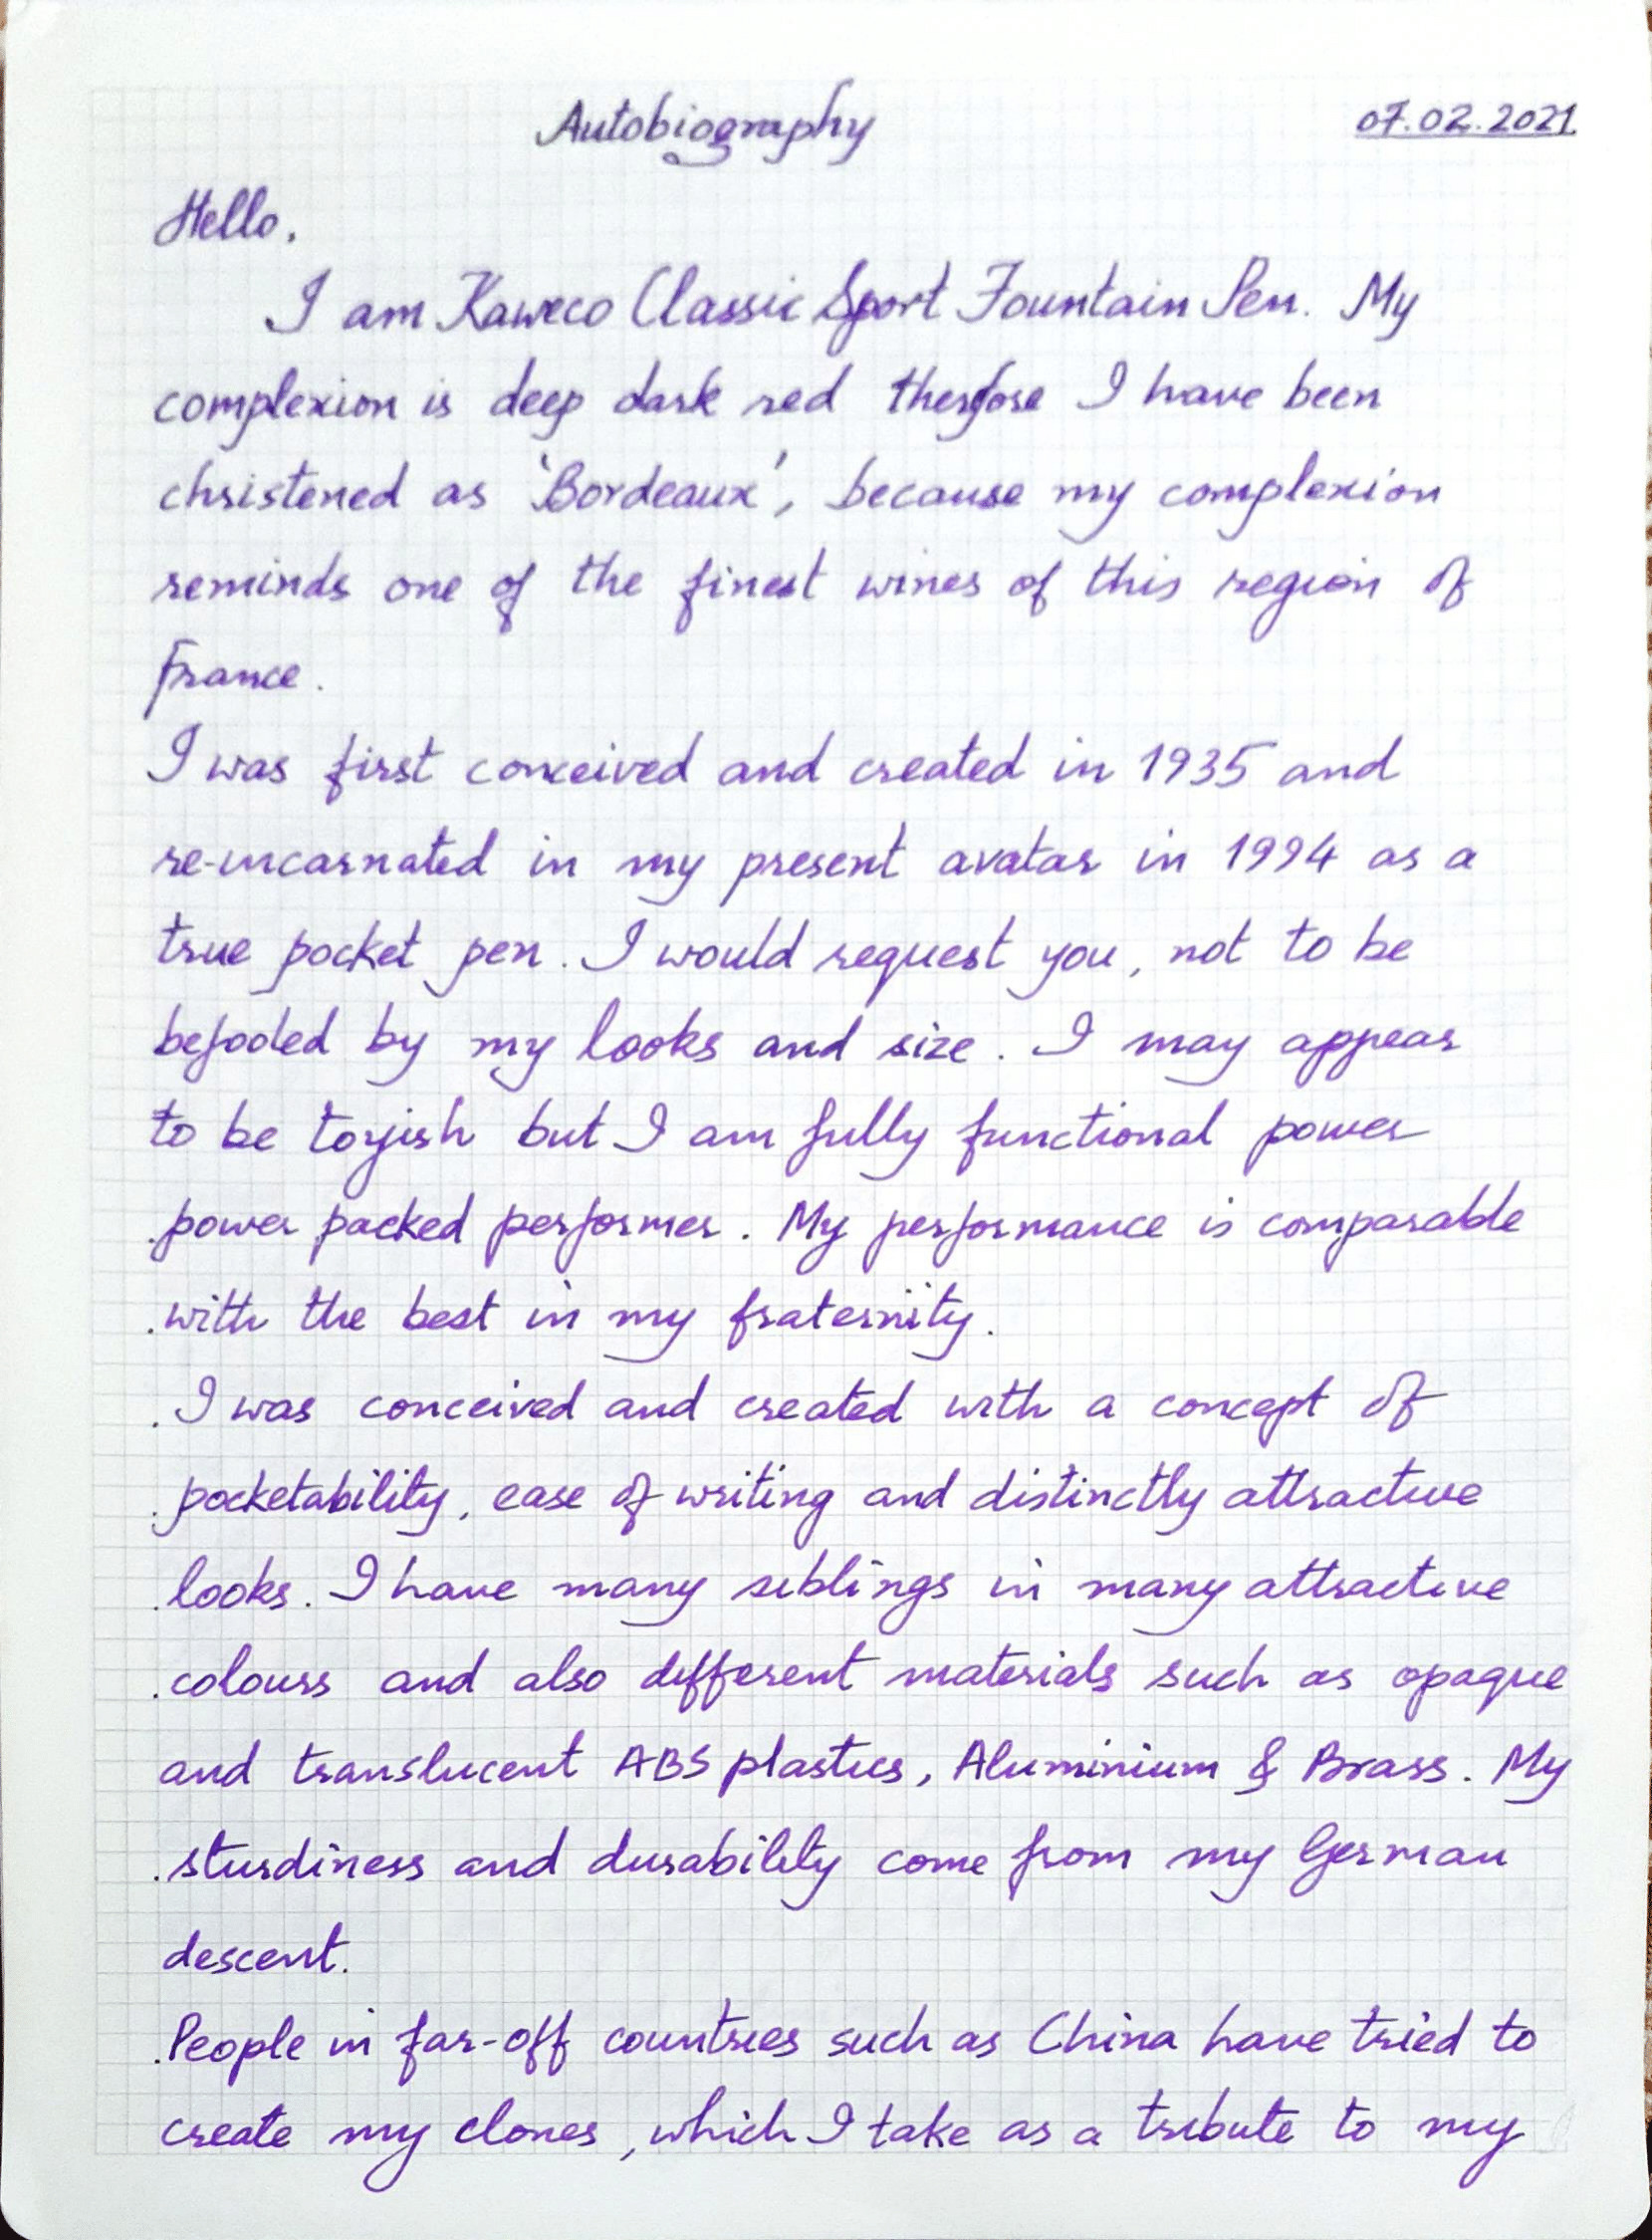 Autobiography 07.02.2021
Hello.
I am Kaweco Classic Sport Fountain Pen. My
complexion is deep dark red therefore I have been
christened as 'Bordeaux', because my complexion
reminds one of the finest wines of this region of
France.
I was first conceived and created in 1935 and
re-incarnated in my present avatar in 1994 as a
true pocket pen. I would request you, not to be
befooled by my looks and size. I may appear
to be toyish but I am fully functional power
power packed performer. My performance is comparable
with the best in my fraternity.
I was conceived and created with a concept of
pocketability, ease of writing and distinctly attractive
looks. I have many siblings in many attractive
colours and also different materials such as opaque
and translucent ABS plastics, Aluminium & Brass. My
sturdiness and durability come from my German
descent.
People in far-off countries such as China have tried to
create my clones, which I take as a tribute to my